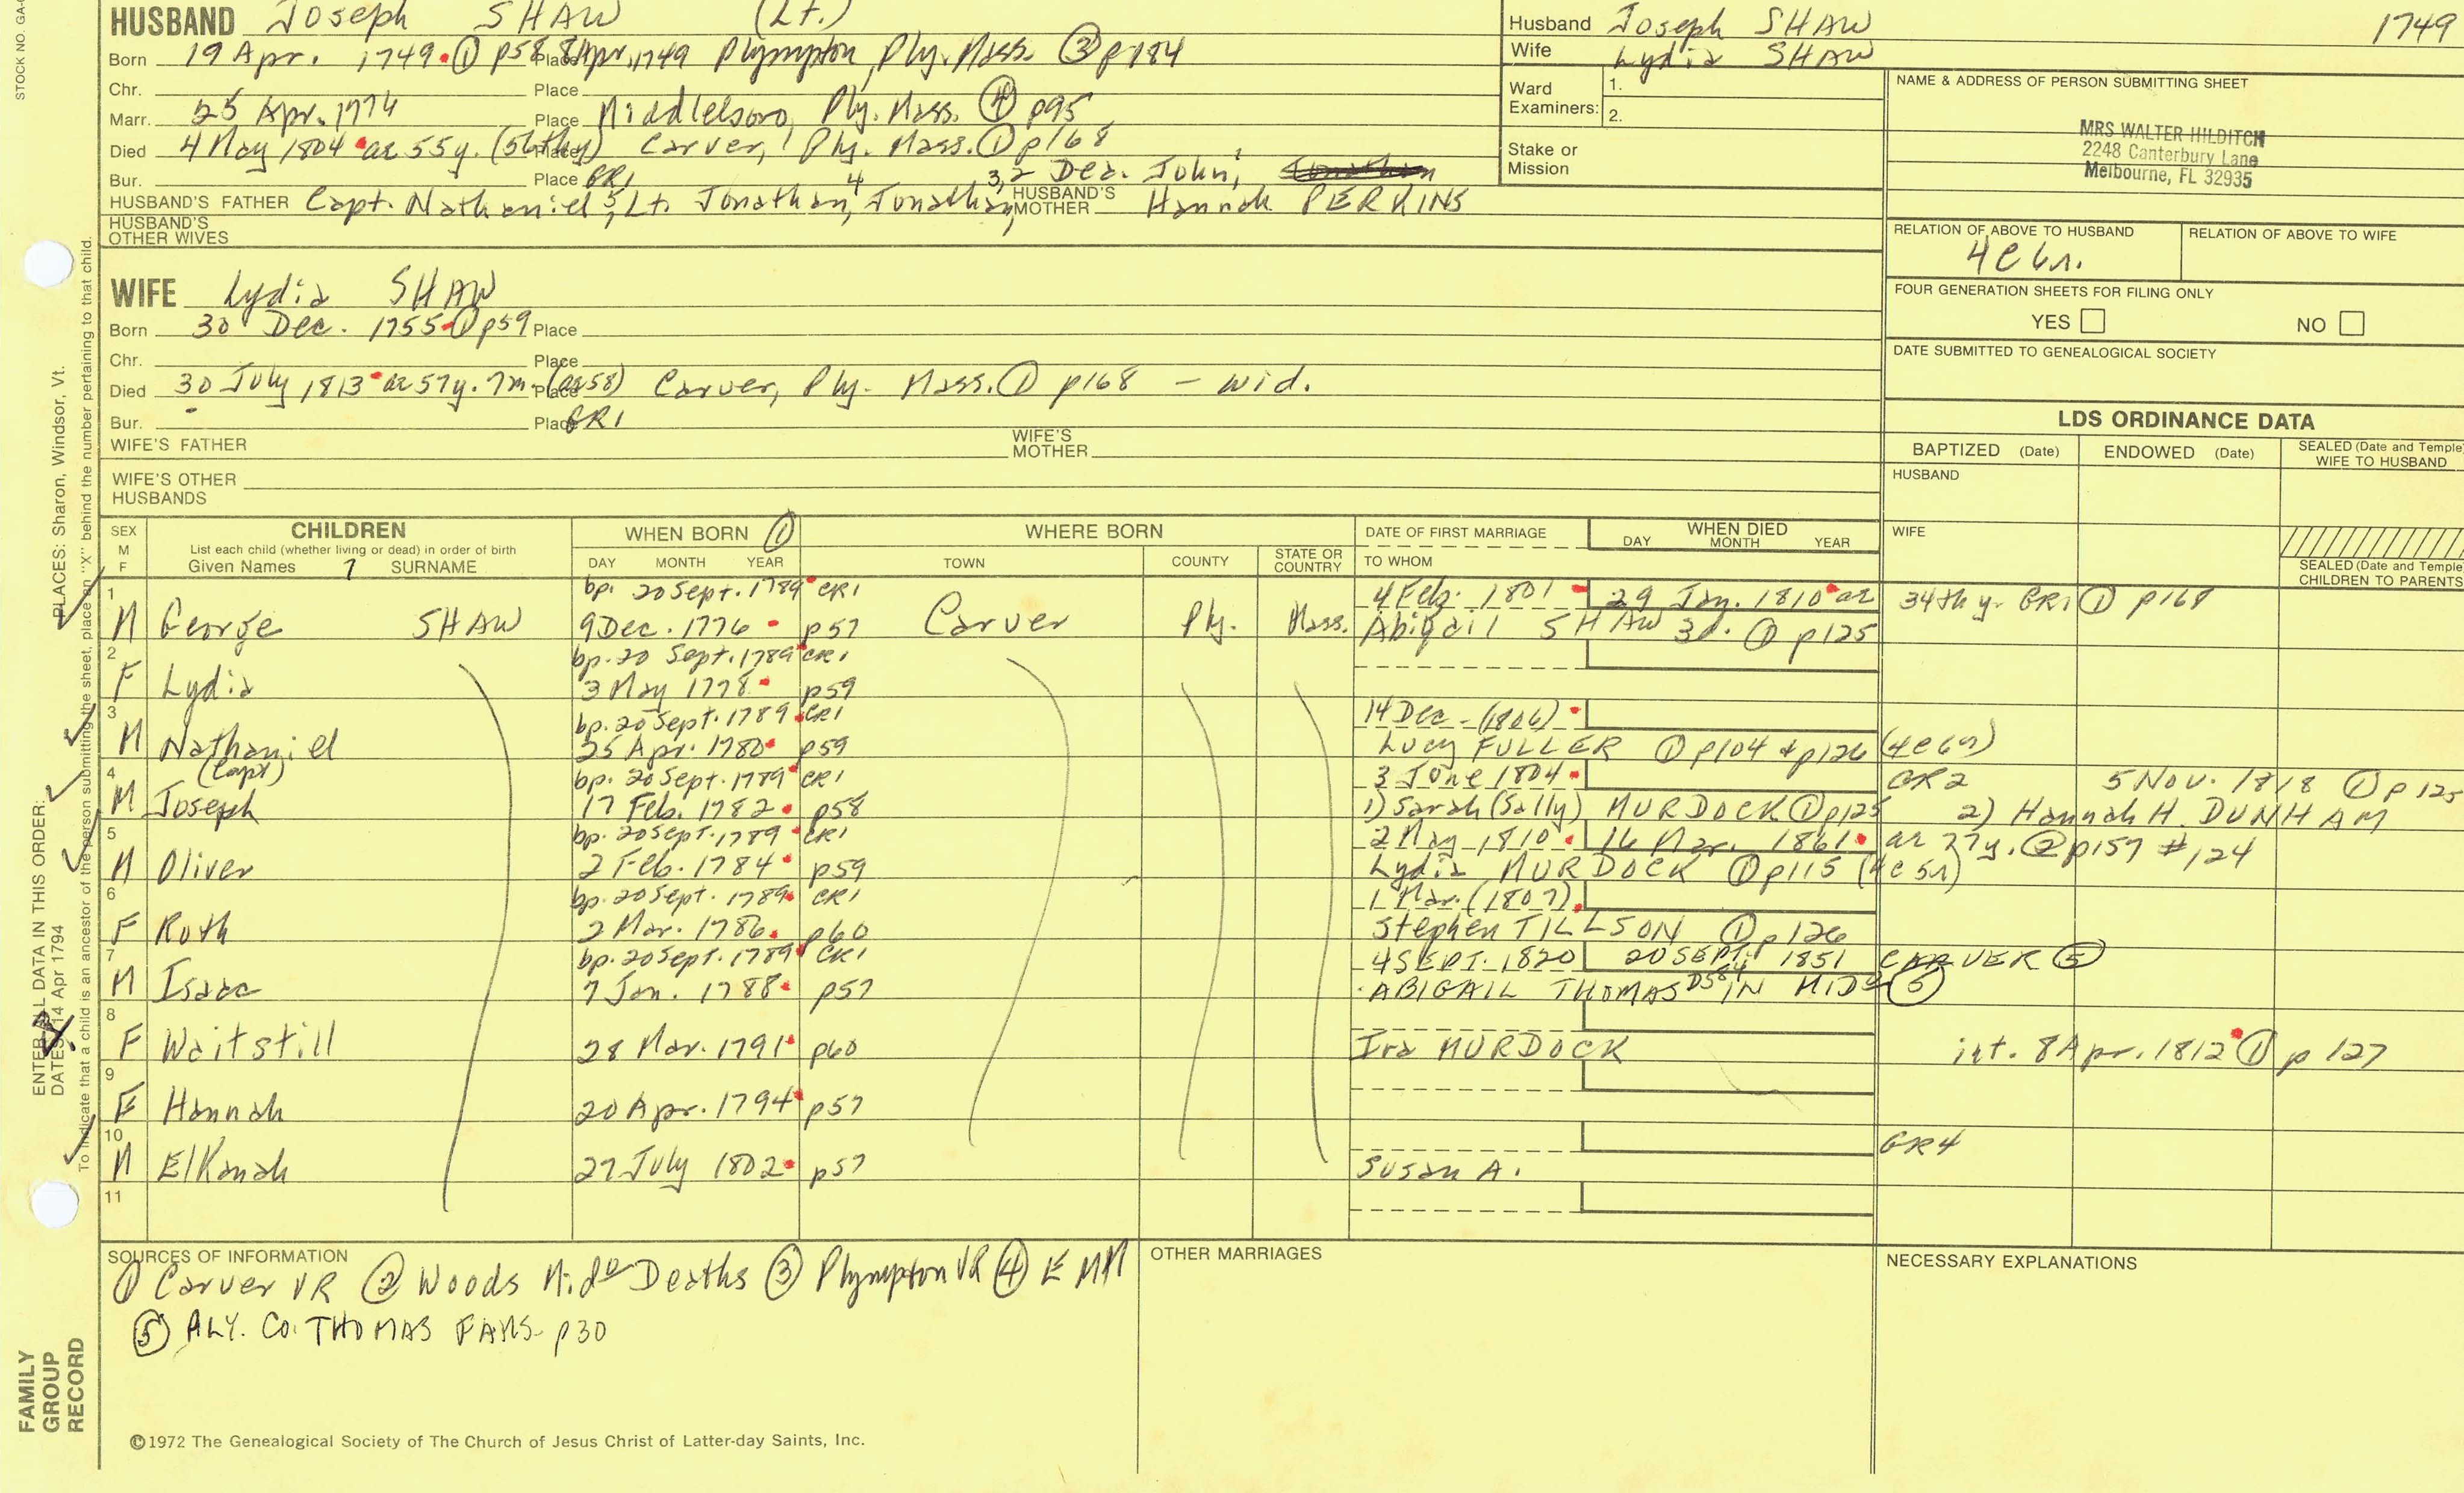 STOCK NO. GA-
HUSBAND Joseph SHAW (Lt.)
Born 19 Apr. 1749 ① p58 8 Apr. 1749 Place Plympton, Ply. Mass. ③ p184
Chr. Place
Marr. 25 Apr. 1774 Place Middleboro, Ply. Mass. ④ p95
Died 4 May 1804 ae 55y. (56thy) Place Carver, Ply. Mass. ① p168
Bur. Place GR1
HUSBAND'S FATHER Capt. Nathaniel 5, Lt. Jonathan 4, Jonathan 3,2 Dea. John 1, HUSBAND'S MOTHER Hannah PERKINS
HUSBAND'S OTHER WIVES
WIFE Lydia SHAW
Born 30 Dec. 1755 ① p59 Place
Chr. Place
Died 30 July 1813 ae 57y. 7m. (ae 58) Place Carver, Ply. Mass. ① p168 – wid.
Bur. Place GR1
WIFE'S FATHER WIFE'S MOTHER
WIFE'S OTHER HUSBANDS
Husband Joseph SHAW 1749
Wife Lydia SHAW
Ward Examiners: 1.
2.
Stake or Mission
NAME & ADDRESS OF PERSON SUBMITTING SHEET
MRS WALTER HILDITCH
2248 Canterbury Lane
Melbourne, FL 32935
RELATION OF ABOVE TO HUSBAND RELATION OF ABOVE TO WIFE
4c6r.
FOUR GENERATION SHEETS FOR FILING ONLY
YES NO
DATE SUBMITTED TO GENEALOGICAL SOCIETY
LDS ORDINANCE DATA
BAPTIZED (Date) ENDOWED (Date) SEALED (Date and Temple) WIFE TO HUSBAND
HUSBAND
WIFE
SEALED (Date and Temple) CHILDREN TO PARENTS
SEX M F
CHILDREN
List each child (whether living or dead) in order of birth
Given Names SURNAME
WHEN BORN ①
DAY MONTH YEAR
WHERE BORN
TOWN COUNTY STATE OR COUNTRY
DATE OF FIRST MARRIAGE
TO WHOM
WHEN DIED
DAY MONTH YEAR
1 bp. 20 Sept. 1789 CR1 4 Feb. 1801 29 Jan. 1810 ae 34th y. GR1 ① p168
M George SHAW 9 Dec. 1776 p57 Carver Ply. Mass. Abigail SHAW 3d. ① p125
2 bp. 20 Sept. 1789 CR1
F Lydia 3 May 1778 p59
3 bp. 20 Sept. 1789 CR1 14 Dec. (1806)
M Nathaniel (Capt) 25 Apr. 1780 p59 Lucy FULLER ① p104 + p126 (4c6r)
4 bp. 20 Sept. 1789 CR1 3 June 1804 CR2 5 Nov. 1818 ① p125
M Joseph 17 Feb. 1782 p58 1) Sarah (Sally) MURDOCK ① p125 2) Hannah H. DUNHAM
5 bp. 20 Sept. 1789 CR1 2 May 1810 16 Mar. 1861 ae 77y. ② p157 #124
M Oliver 2 Feb. 1784 p59 Lydia MURDOCK ① p115 (4c5r)
6 bp. 20 Sept. 1789 CR1 1 Mar. (1807)
F Ruth 2 Mar. 1786 p60 Stephen TILLSON ① p126
7 bp. 20 Sept. 1789 CR1 4 SEPT. 1820 20 SEPT. 1851 CARVER ⑤
M Isaac 7 Jan. 1788 p57 ABIGAIL THOMAS IN MIDo ⑤
8
F Waitstill 28 Mar. 1791 p60 Ira MURDOCK int. 8 Apr. 1812 ① p127
9
F Hannah 20 Apr. 1794 p57
10 GR4
M Elkanah 27 July 1802 p57 Susan A.
11
SOURCES OF INFORMATION
① Carver VR ② Woods Mido Deaths ③ Plympton VR ④ EMM
⑤ PLY. CO. THOMAS FAMS. p30
OTHER MARRIAGES
NECESSARY EXPLANATIONS
©1972 The Genealogical Society of The Church of Jesus Christ of Latter-day Saints, Inc.
FAMILY GROUP RECORD
ENTER ALL DATA IN THIS ORDER:
DATES: 14 Apr 1794
PLACES: Sharon, Windsor, Vt.
To indicate that a child is an ancestor of the person submitting the sheet, place an "X" behind the number pertaining to that child.